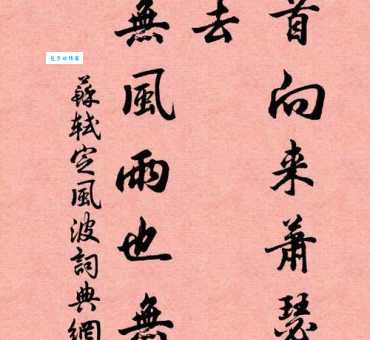 首向来蕭瑟
去
無風雨也無
蘇軾定風波詞典網